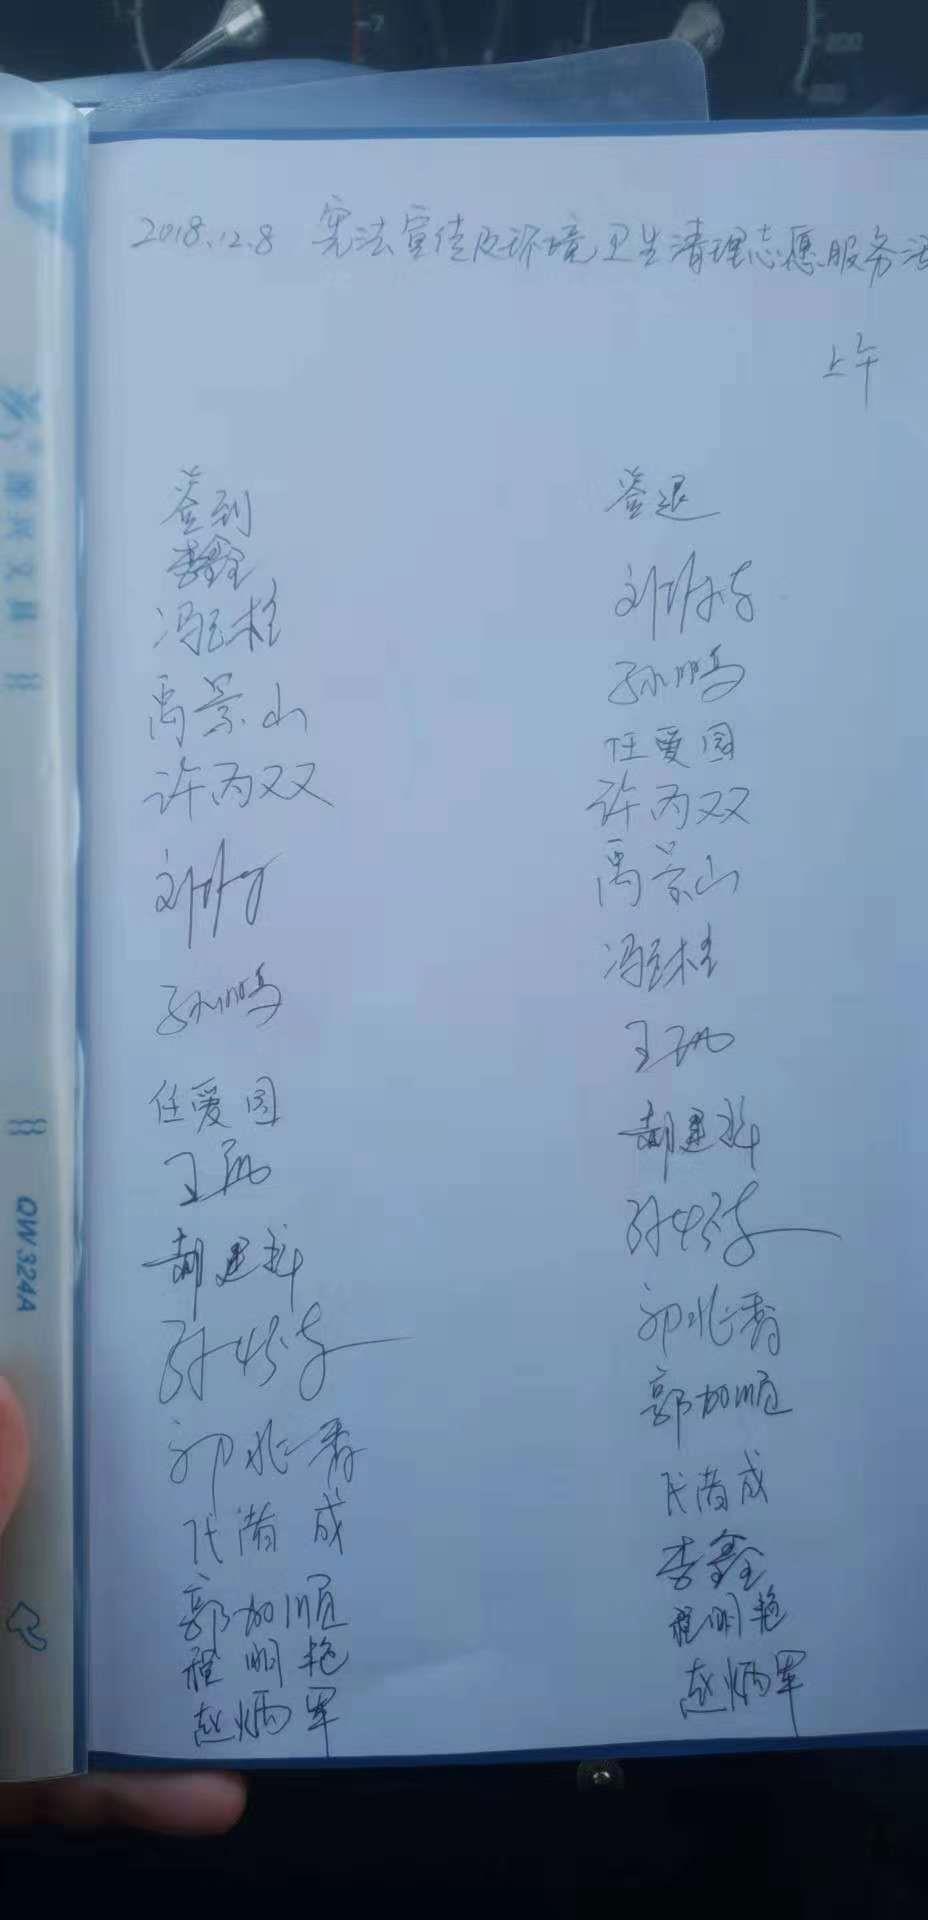 2018.12.8 宪法宣传及环境卫生清理志愿服务活
上午
签到
李鑫
冯玉柱
禹景山
许丙双
刘
孙鹏
任爱园
王
胡建科
孙
邓兆香
成
郭加顺
程明艳
赵炳军
签退
刘
孙鹏
任爱园
许丙双
禹景山
冯玉柱
王
胡建科
孙
邓兆香
郭加顺
成
李鑫
程明艳
赵炳军
QW324A